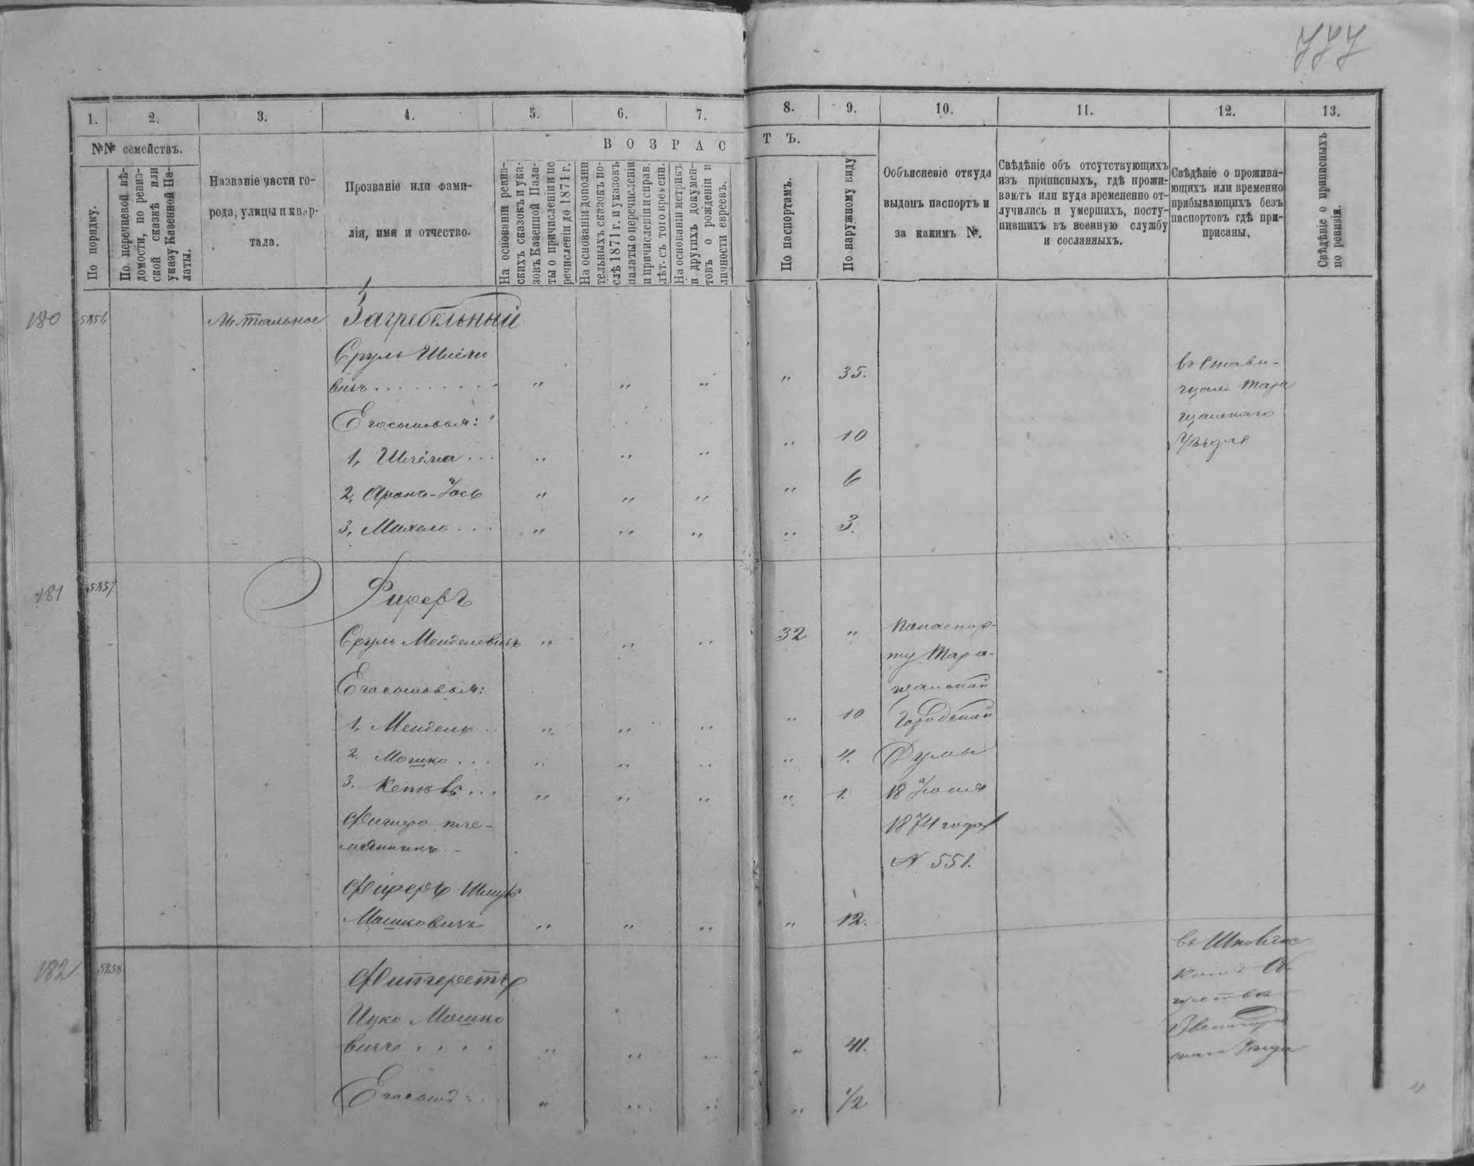 777
1.
2.
3.
4.
5.
6.
7.
8.
9.
10.
11.
12.
13.
№№ семействъ.
По порядку.
По перечневой вѣ-
домости, по ревиз-
ской сказкѣ или
указу Казенной Па-
латы.
Названіе части го-
рода, улицы и квар-
тала.
Прозваніе или фами-
лія, имя и отчество.
ВОЗРАС
На основаніи ревиз-
скихъ сказокъ и ука-
зовъ Казенной Пала-
ты о причисленіи пе
речисленіи до 1871 г.
На основаніи дополни
тельныхъ сказокъ по-
слѣ 1871 г. и указовъ
палаты о перечисленіи
и причисленіи и справ.
лѣт. съ того времени.
На основаніи метрикъ
и другихъ докумен-
товъ о рожденіи и
личности евреевъ.
ТЪ.
По паспортамъ.
По наружному виду
Объясненіе откуда
выданъ паспортъ и
за какимъ №.
Свѣдѣніе объ отсутствующихъ
изъ приписныхъ, гдѣ прожи-
ваютъ или куда временно от-
лучились и умершихъ, посту-
пившихъ въ военную службу
и сосланныхъ.
Свѣдѣніе о прожива-
ющихъ или временно
прибывающихъ безъ
паспортовъ гдѣ при-
писаны.
Свѣдѣніе о приписныхъ
по ревизіи.
180
5856
Загребельный
Сруль Шлёмо
вичъ . . . . . . . . „ „ „ „ 35.
въ Стави-
щахъ Тара
щанскаго
Уѣзда
Его сыновья:
1, Шлёма . . . „ „ „ „ 10
2, Аронъ-Іось „ „ „ „ 6
3, Михель . . . „ „ „ „ 3.
181
5857
Фиферъ
Сруль Менделевичъ „ „ „ 32 „
По паспор-
ту Тара-
щанской
Городской
Думы
18 Іюля
1874 года
№ 551.
Его сыновья:
1, Мендель . . „ „ „ „ 10
2. Мошко . . . „ „ „ „ 4.
3. . . . „ „ „ „ 1.
пле-
мянникъ
Фиферъ
Мошковичъ „ „ „ „ 12.
182
5858
Ицко Мошко
вичъ . . . . „ „ „ „ 41.
Его сынъ . . „ „ „ „ 1/2